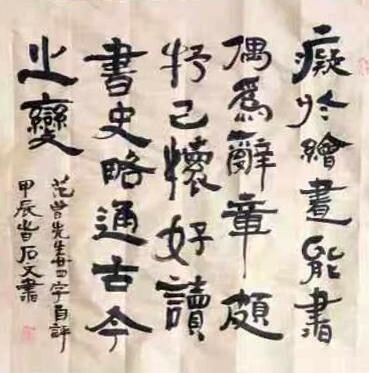 癡於繪畫能書
偶爲辭章頗
抒己懷好讀
書史略通古今
之變
范曾先生廿四字自評
甲辰石文書